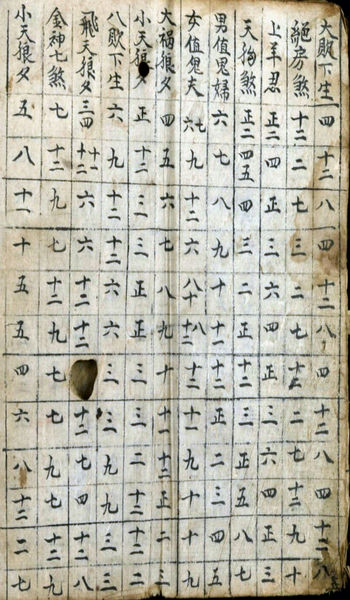 大敗下生 四 十二 八 四 十二 八 四 十二 八 四 十二 八
絕房煞 十二 二 七 三 二 七 十二 二 三 十二 九 十
上羊忍 正二 四 正 三 六 四 正 三 六 四 正 三
天狗煞 正二 四五 四 三 二 正 十二 三 正 五 八 七
男值鬼婦 六 七 八 九 十 十一 十二 正 二 三 四 五
女值鬼夫 七六 九 十二 六 八十 八十二 十二 十一 九 十 十 九
大禍狼夕 四 五 六 七 八 九 十 十一 十二 正 二 三
小天狼夕 正 十二 三 三 正 正 三 三 二 十二 二 二
八敗下生 六 九 十二 十二 六 六 三 三 九 九 三 三
飛天狼夕 三四 十一十二 六 六 十二 十二 十二 七 四 十二 八
金神七煞 七 十二 九 七 十二 九 七 七 九 七 十二 九
小天狼夕 五 八 十一 十 五 五 四 六 八 十二 二 七